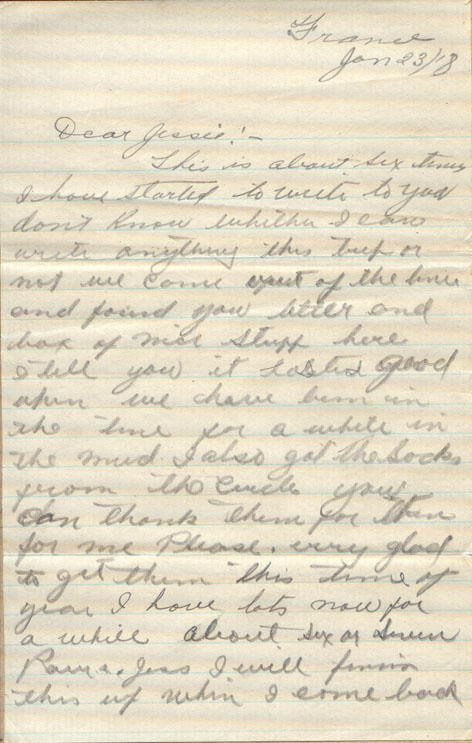 France
Jan 23/18
Dear Jessie! -
This is about six times
I have started to write to you
don't know whether I can
write anything this trip or
not we come out of the line
and found you letter and
box of nice stuff here
I tell you it tasted good
when we have been in
the line for a while in
the mud I also got the Socks
from the Circle you
can thank them for them
for me Please. very glad
to get them this time of
year I have lots now for
a while about six or seven
Pairs. Jess I will finish
this up when I come back